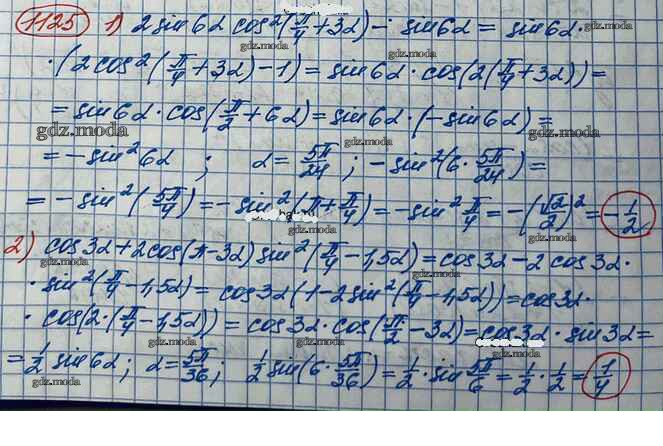 1125 1) 2 sin 6α cos²(π/4 + 3α) - sin 6α = sin 6α ·
gdz.moda gdz.moda
· (2 cos²(π/4 + 3α) - 1) = sin 6α · cos(2(π/4 + 3α)) =
gdz.moda gdz.moda
= sin 6α · cos(π/2 + 6α) = sin 6α · (- sin 6α) =
gdz.moda gdz.moda
= - sin² 6α ; α = 5π/24 ; - sin²(6 · 5π/24) =
gdz.moda gdz.moda
= - sin²(5π/4) = - sin²(π + π/4) = - sin² π/4 = -(√2/2)² = - 1/2
gdz.moda gdz.moda
2) cos 3α + 2 cos(π - 3α) sin²(π/4 - 1,5α) = cos 3α - 2 cos 3α ·
gdz.moda gdz.moda
· sin²(π/4 - 1,5α) = cos 3α (1 - 2 sin²(π/4 - 1,5α)) = cos 3α ·
gdz.moda gdz.moda
· cos(2 · (π/4 - 1,5α)) = cos 3α · cos(π/2 - 3α) = cos 3α · sin 3α =
gdz.moda gdz.moda gdz.moda
= 1/2 sin 6α ; α = 5π/36 ; 1/2 sin(6 · 5π/36) = 1/2 · sin 5π/6 = 1/2 · 1/2 = 1/4
gdz.moda gdz.moda gdz.moda gdz.moda